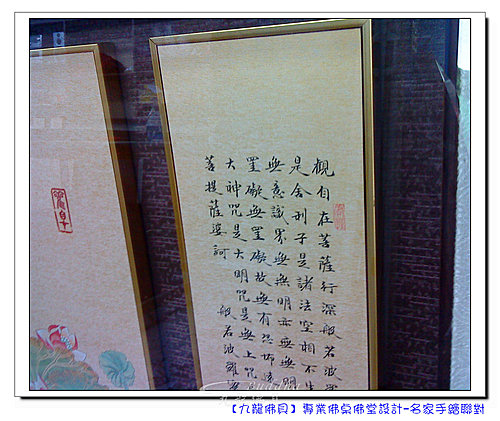 觀自在菩薩行深般若波羅
是舍利子是諸法空相不生
無意識界無無明亦無無明
罣礙無罣礙故無有恐怖遠
大神咒是大明咒是無上咒
菩提薩婆訶
般若波羅
Buddha
【九龍佛具】專業佛桌佛堂設計-名家手繪聯對